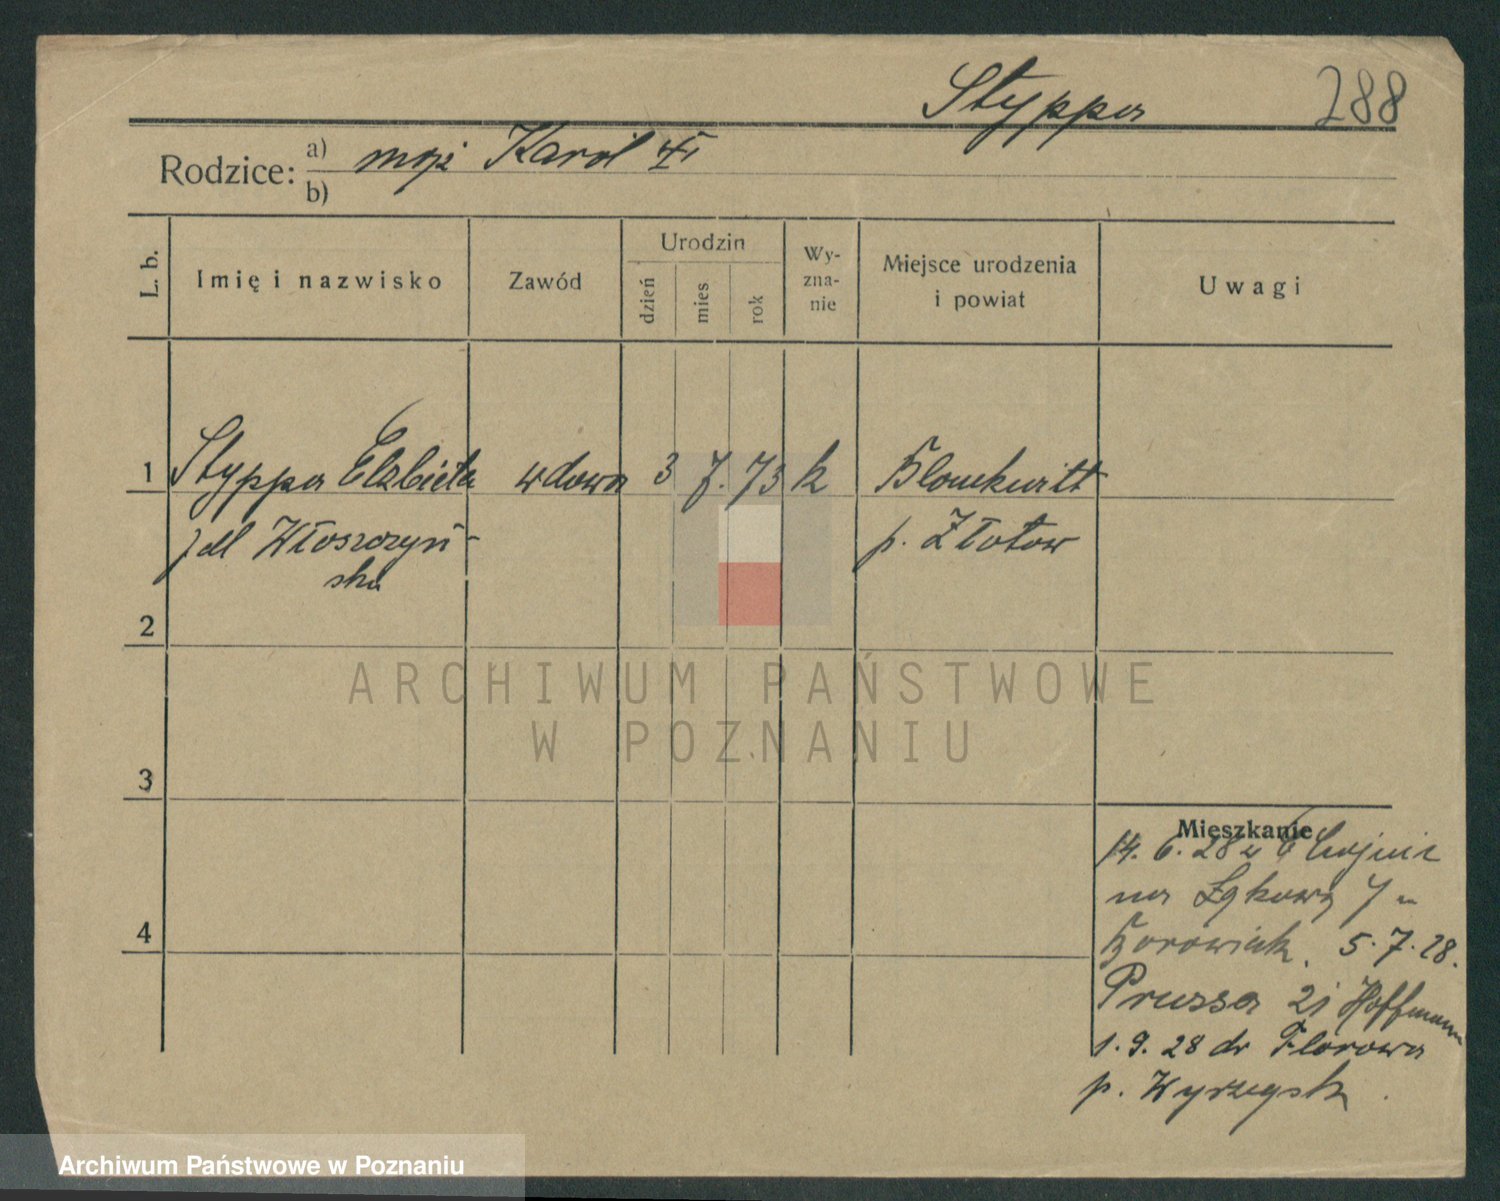 Styppa 288
Rodzice: a) mąż Karol
b)
L. b. Imię i nazwisko Zawód Urodzin dzień mies rok Wy-zna-nie Miejsce urodzenia i powiat Uwagi
1 Styppa Elżbieta wdowa 3 7. 73 k
Włoszczyń-
ska p. Złotow
2
ARCHIWUM PAŃSTWOWE
W POZNANIU
3
4
Mieszkanie
14. 6. 28 z Chojnic
na Łąkową 7
Borowiak. 5. 7. 28.
Prussa 21 Hoffmann
1. 9. 28 do Florowa
p. Wyrzysk
Archiwum Państwowe w Poznaniu